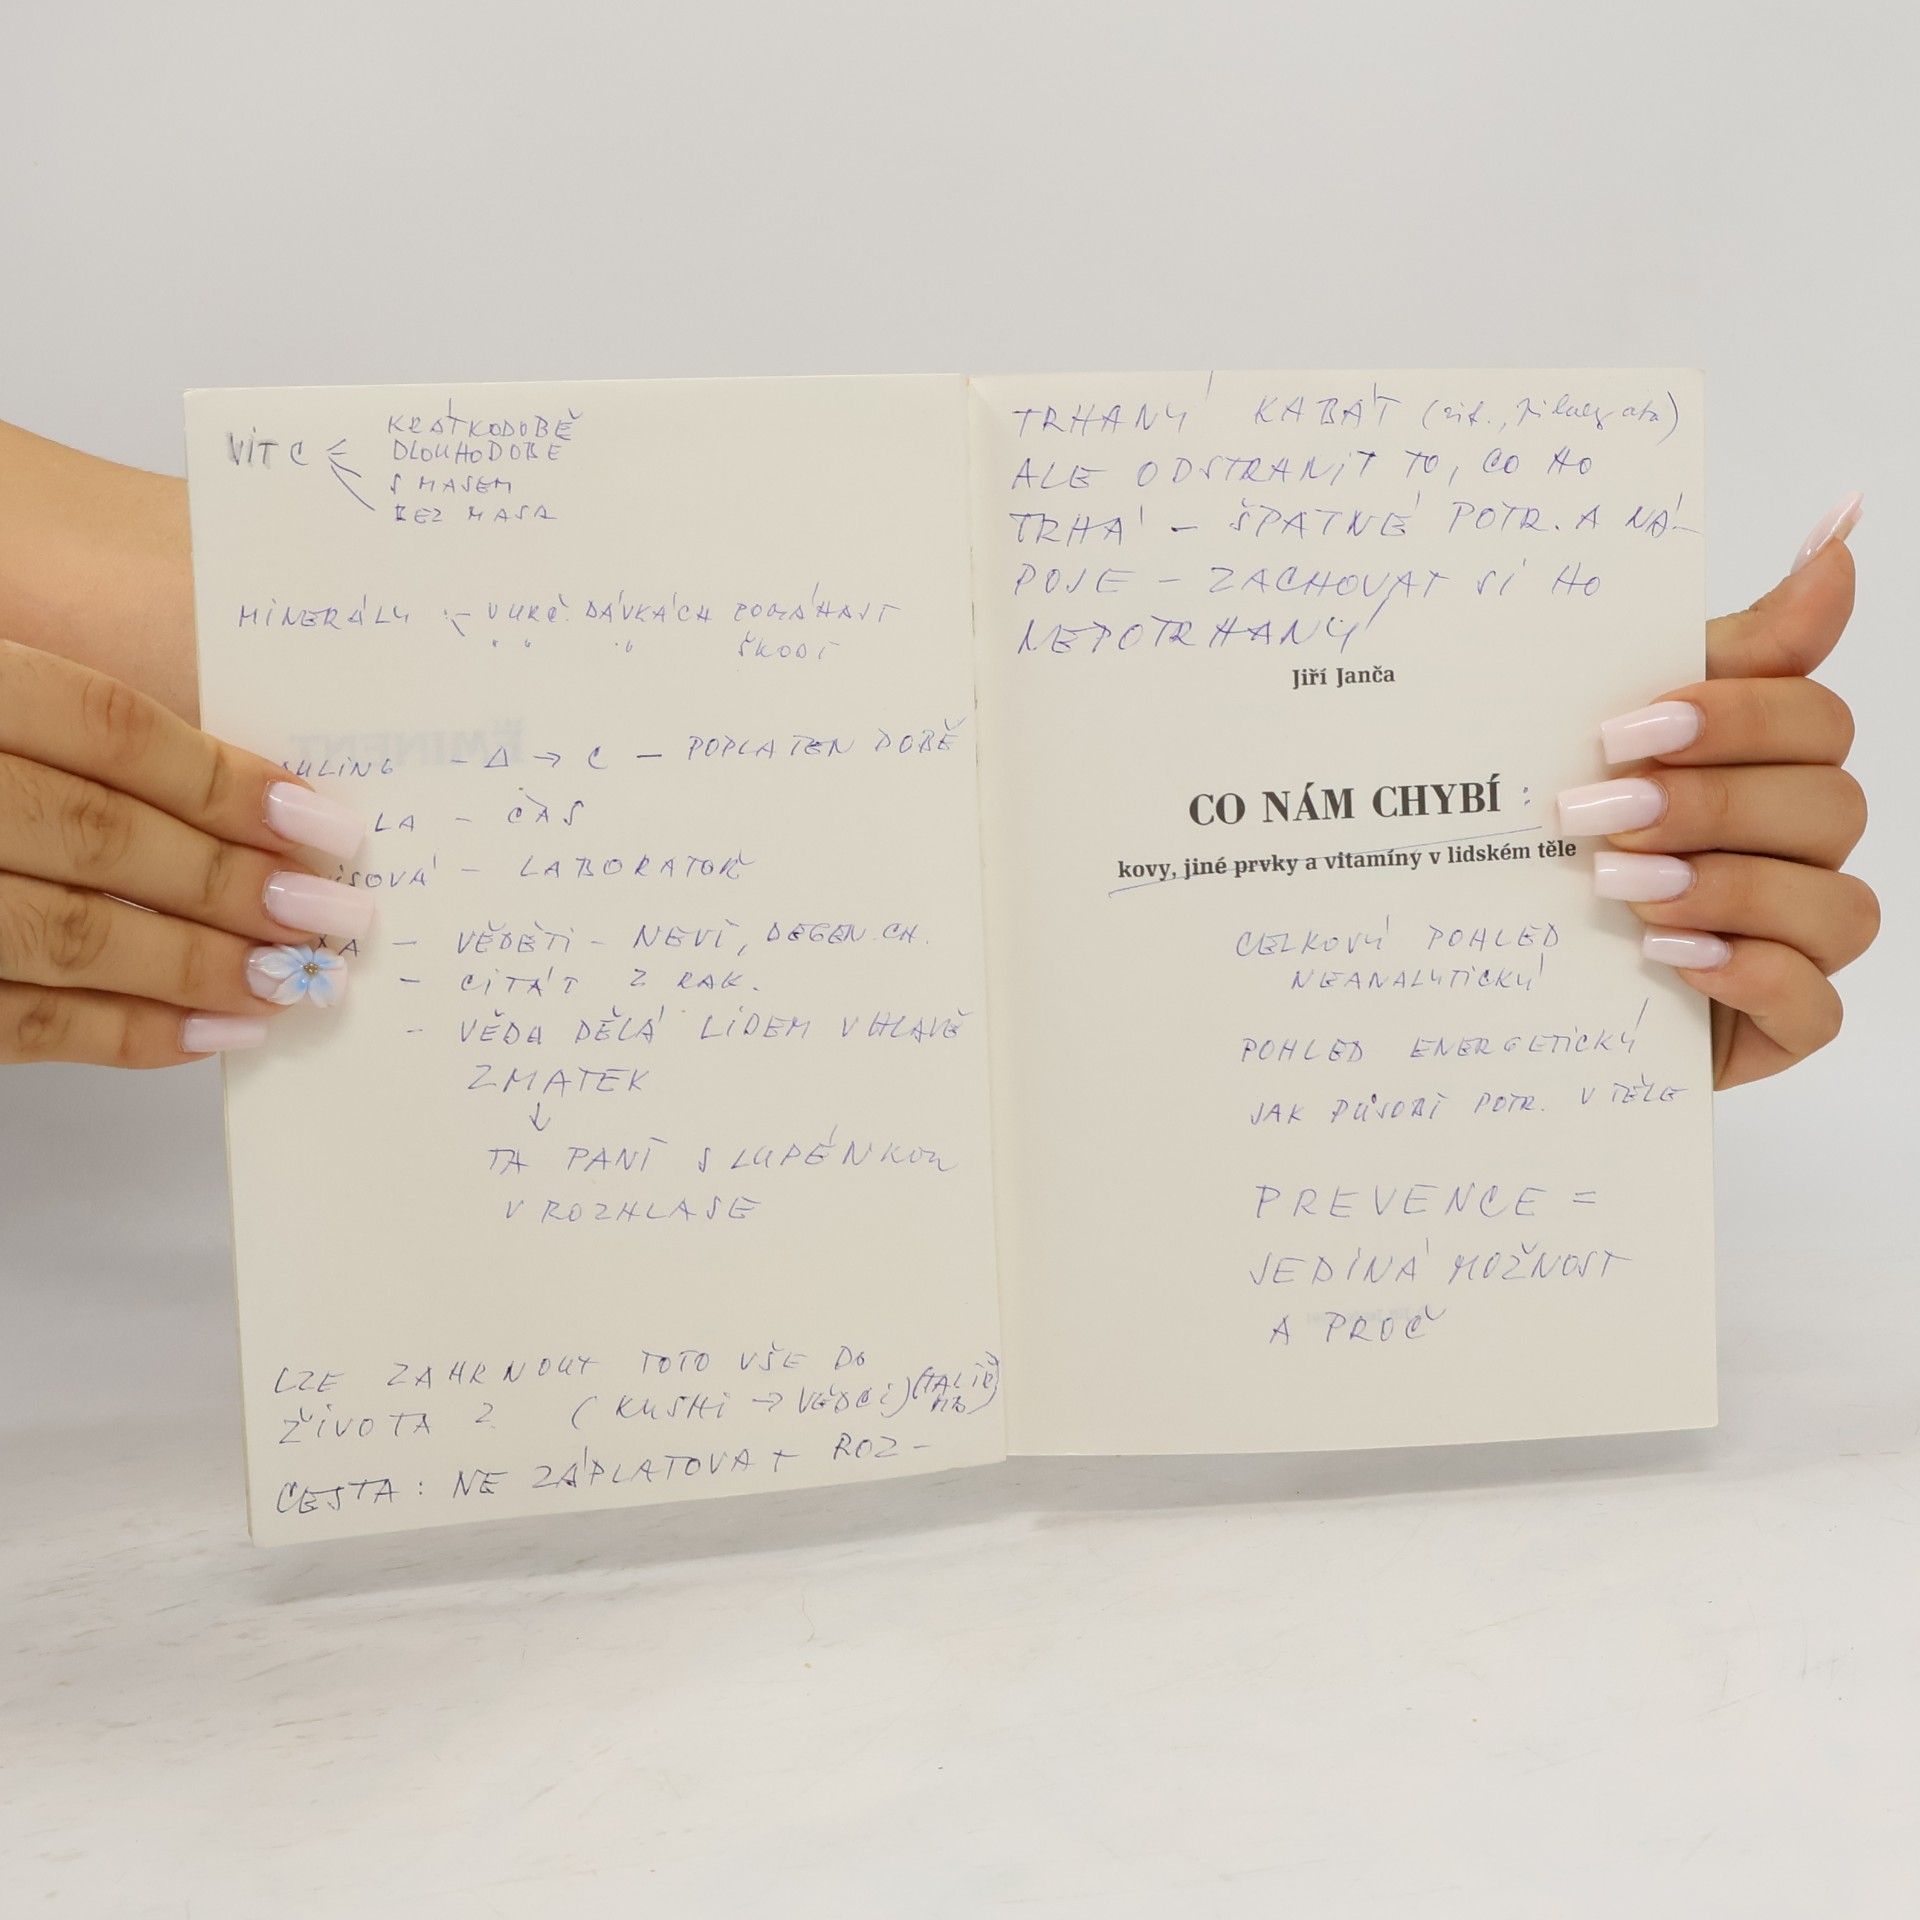 VIT C
KRÁTKODOBĚ
DLOUHODOBĚ
S MASEM
BEZ MASA
MINERÁLY :- V URČ. DÁVKÁCH POMÁHAJÍ
" " " ŠKODÍ
ULING - Δ → C - POPLATEN DOBĚ
LA - ČAS
ISOVÁ - LABORATOŘ
XA - VĚDĚTI - NEVÍ, DEGEN. CH.
- CITÁT Z RAK.
- VĚDA DĚLÁ LIDEM V HLAVĚ
ZMATEK
↓
TA PANÍ S LUPÉNKOU
V ROZHLASE
LZE ZAHRNOUT TOTO VŠE DO
ŽIVOTA ? (KUSHI → VĚDCI) (TALÍŘ
CESTA : NE ZÁPLATOVAT ROZ-
TRHANÝ KABÁT
ALE ODSTRANIT TO, CO HO
TRHÁ - ŠPATNÉ POTR. A NÁ-
POJE - ZACHOVAT SI HO
NEPOTRHANÝ
Jiří Janča
CO NÁM CHYBÍ :
kovy, jiné prvky a vitamíny v lidském těle
CELKOVÝ POHLED
NEANALYTICKÝ
POHLED ENERGETICKÝ
JAK PŮSOBÍ POTR. V TĚLE
PREVENCE =
JEDINÁ MOŽNOST
A PROČ